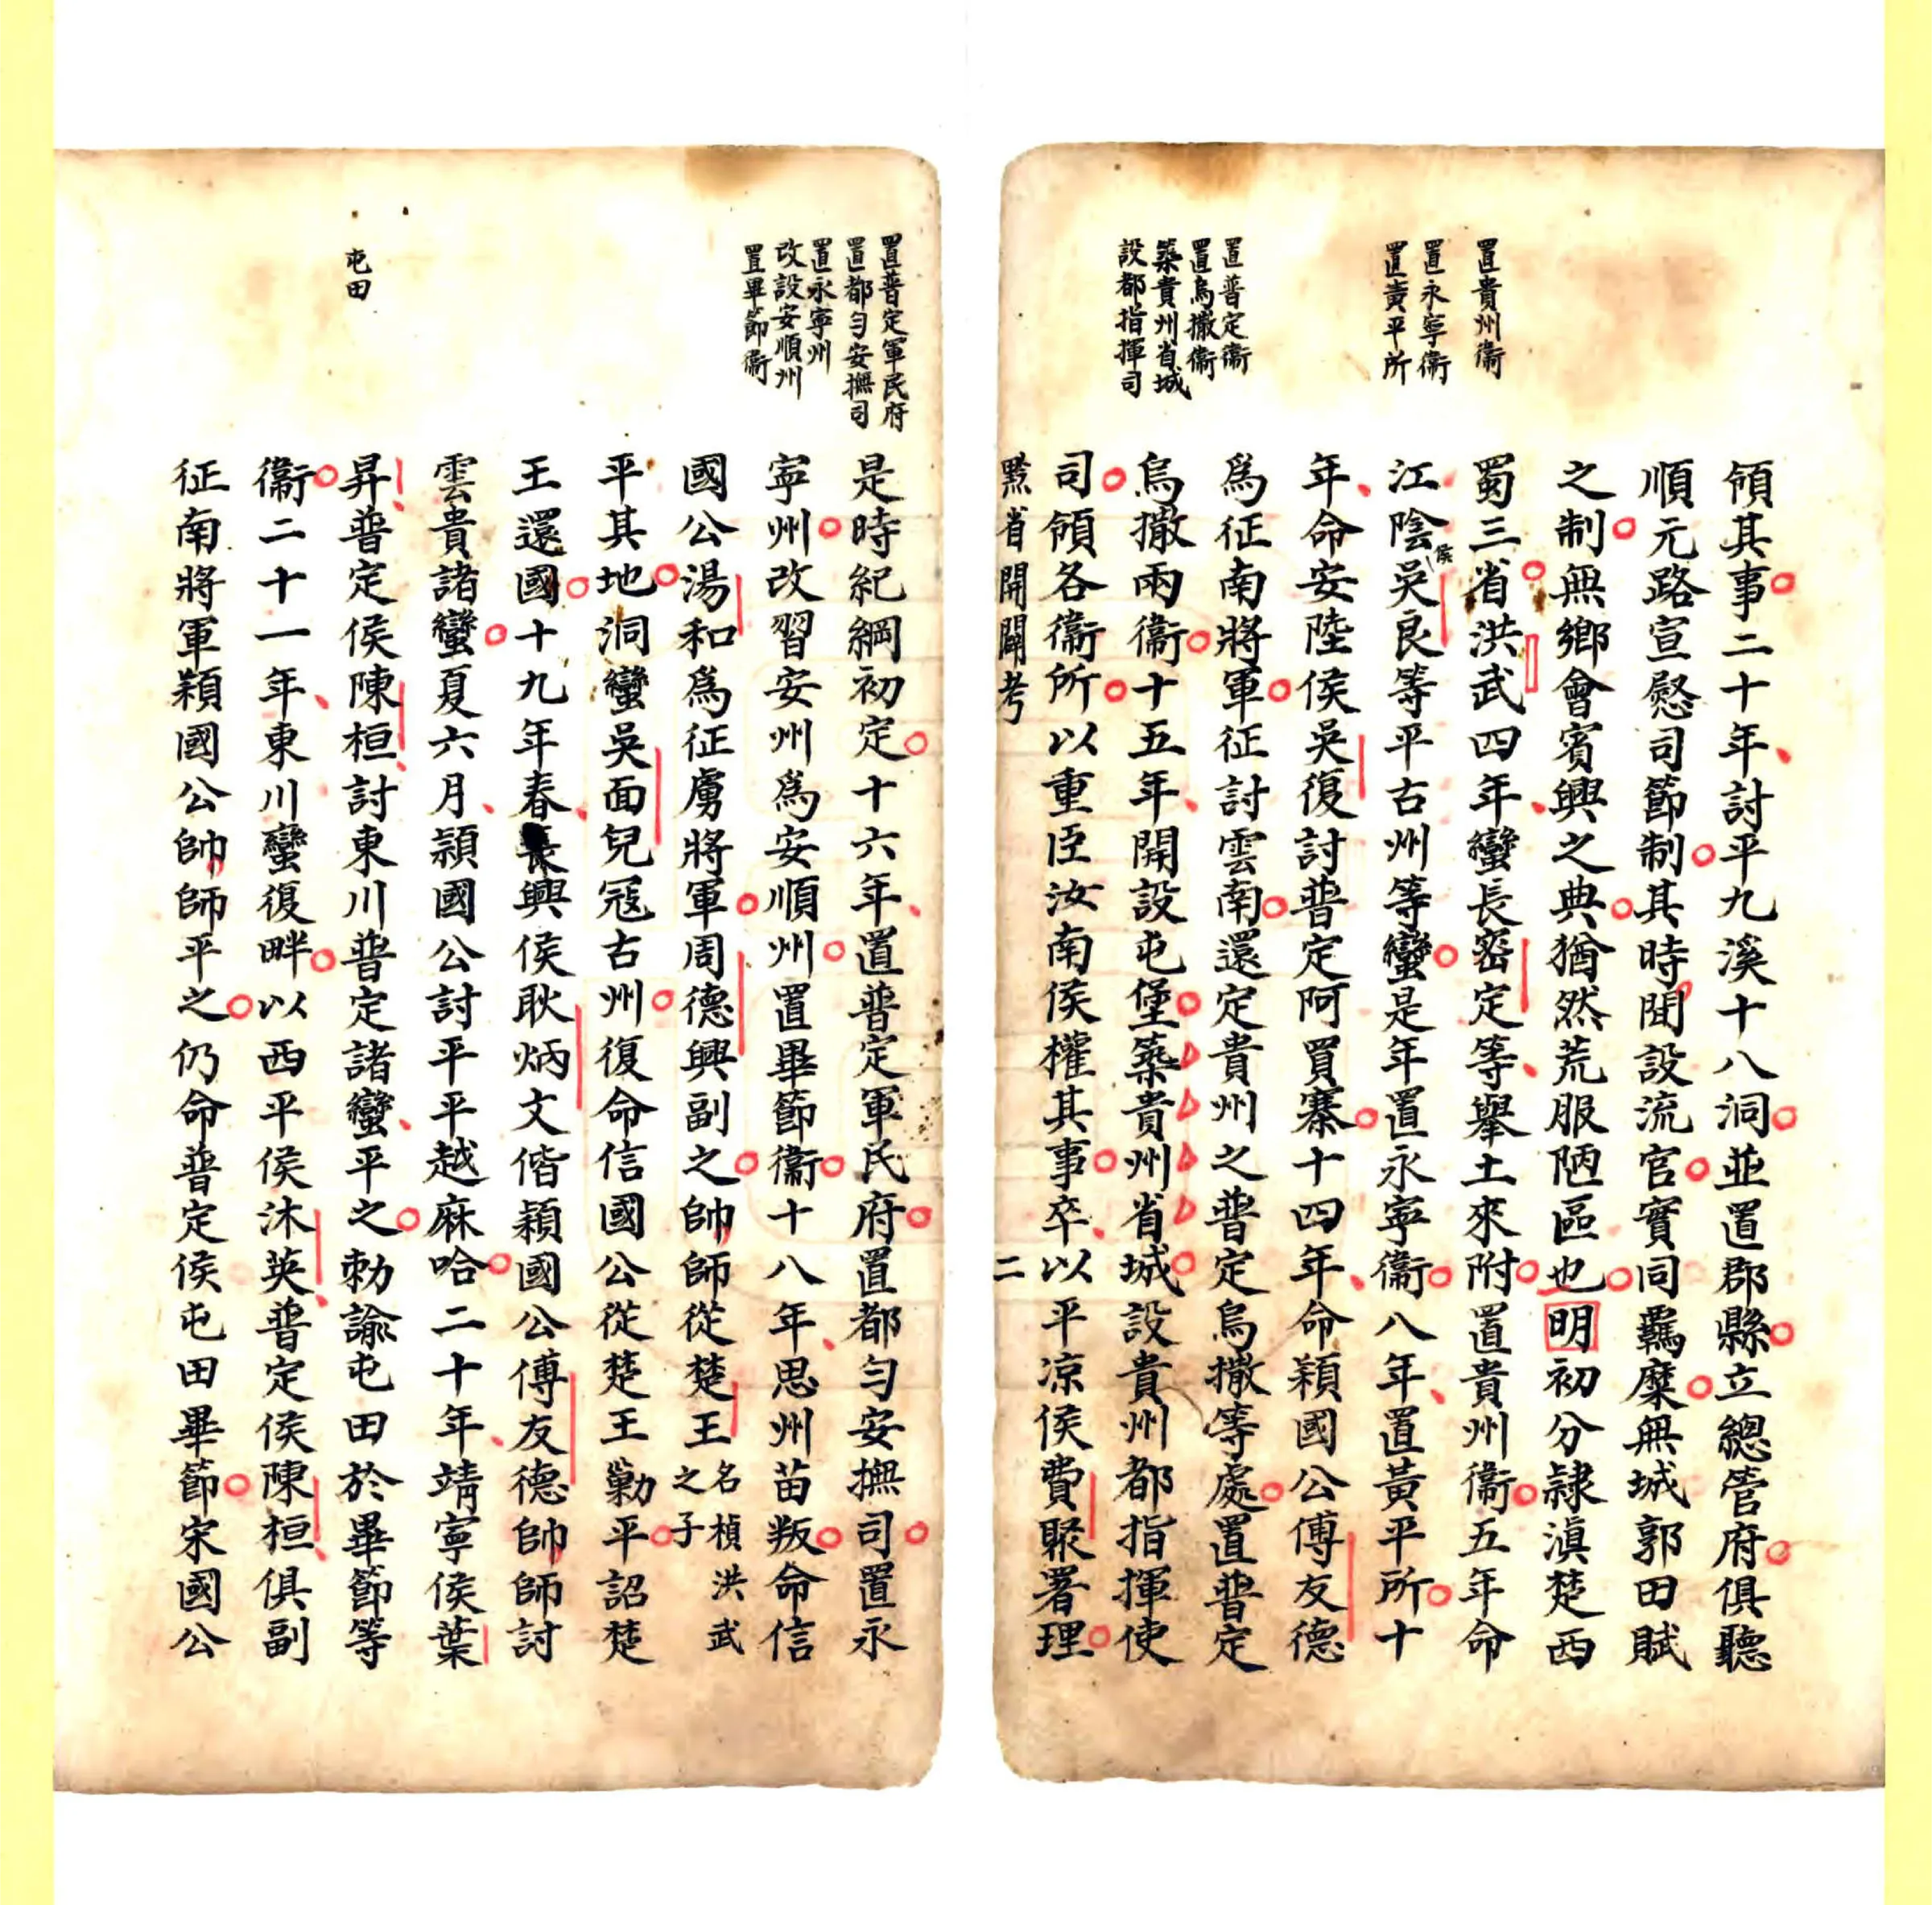 置貴州衞
置永寧衞
置黃平所
置普定衞
置烏撒衞
築貴州省城
設都指揮司
領其事二十年討平九溪十八洞並置郡縣立總管府俱聽
順元路宣慰司節制其時聞設流官實同羈縻無城郭田賦
之制無鄉會賓興之典猶然荒服陋區也明初分隸滇楚西
蜀三省洪武四年蠻長密定等舉土來附置貴州衞五年命
江陰侯吳良等平古州等蠻是年置永寧衞八年置黃平所十
年命安陸侯吳復討普定阿買寨十四年命穎國公傅友德
爲征南將軍征討雲南還定貴州之普定烏撒等處置普定
烏撒兩衞十五年開設屯堡築貴州省城設貴州都指揮使
司領各衞所以重臣汝南侯權其事卒以平凉侯費聚署理
黔省開闢考 二
置普定軍民府
置都勻安撫司
置永寧州
改設安順州
置畢節衞
屯田
是時紀綱初定十六年置普定軍民府置都勻安撫司置永
寧州改習安州爲安順州置畢節衞十八年思州苗叛命信
國公湯和爲征虜將軍周德興副之帥師從楚王名楨洪武之子
平其地洞蠻吳面兒冦古州復命信國公從楚王勦平詔楚
王還國十九年春長興侯耿炳文偕穎國公傅友德帥師討
雲貴諸蠻夏六月穎國公討平平越麻哈二十年靖寧侯葉
昇普定侯陳桓討東川普定諸蠻平之勅諭屯田於畢節等
衞二十一年東川蠻復畔以西平侯沐英普定侯陳桓俱副
征南將軍穎國公帥師平之仍命普定侯屯田畢節宋國公